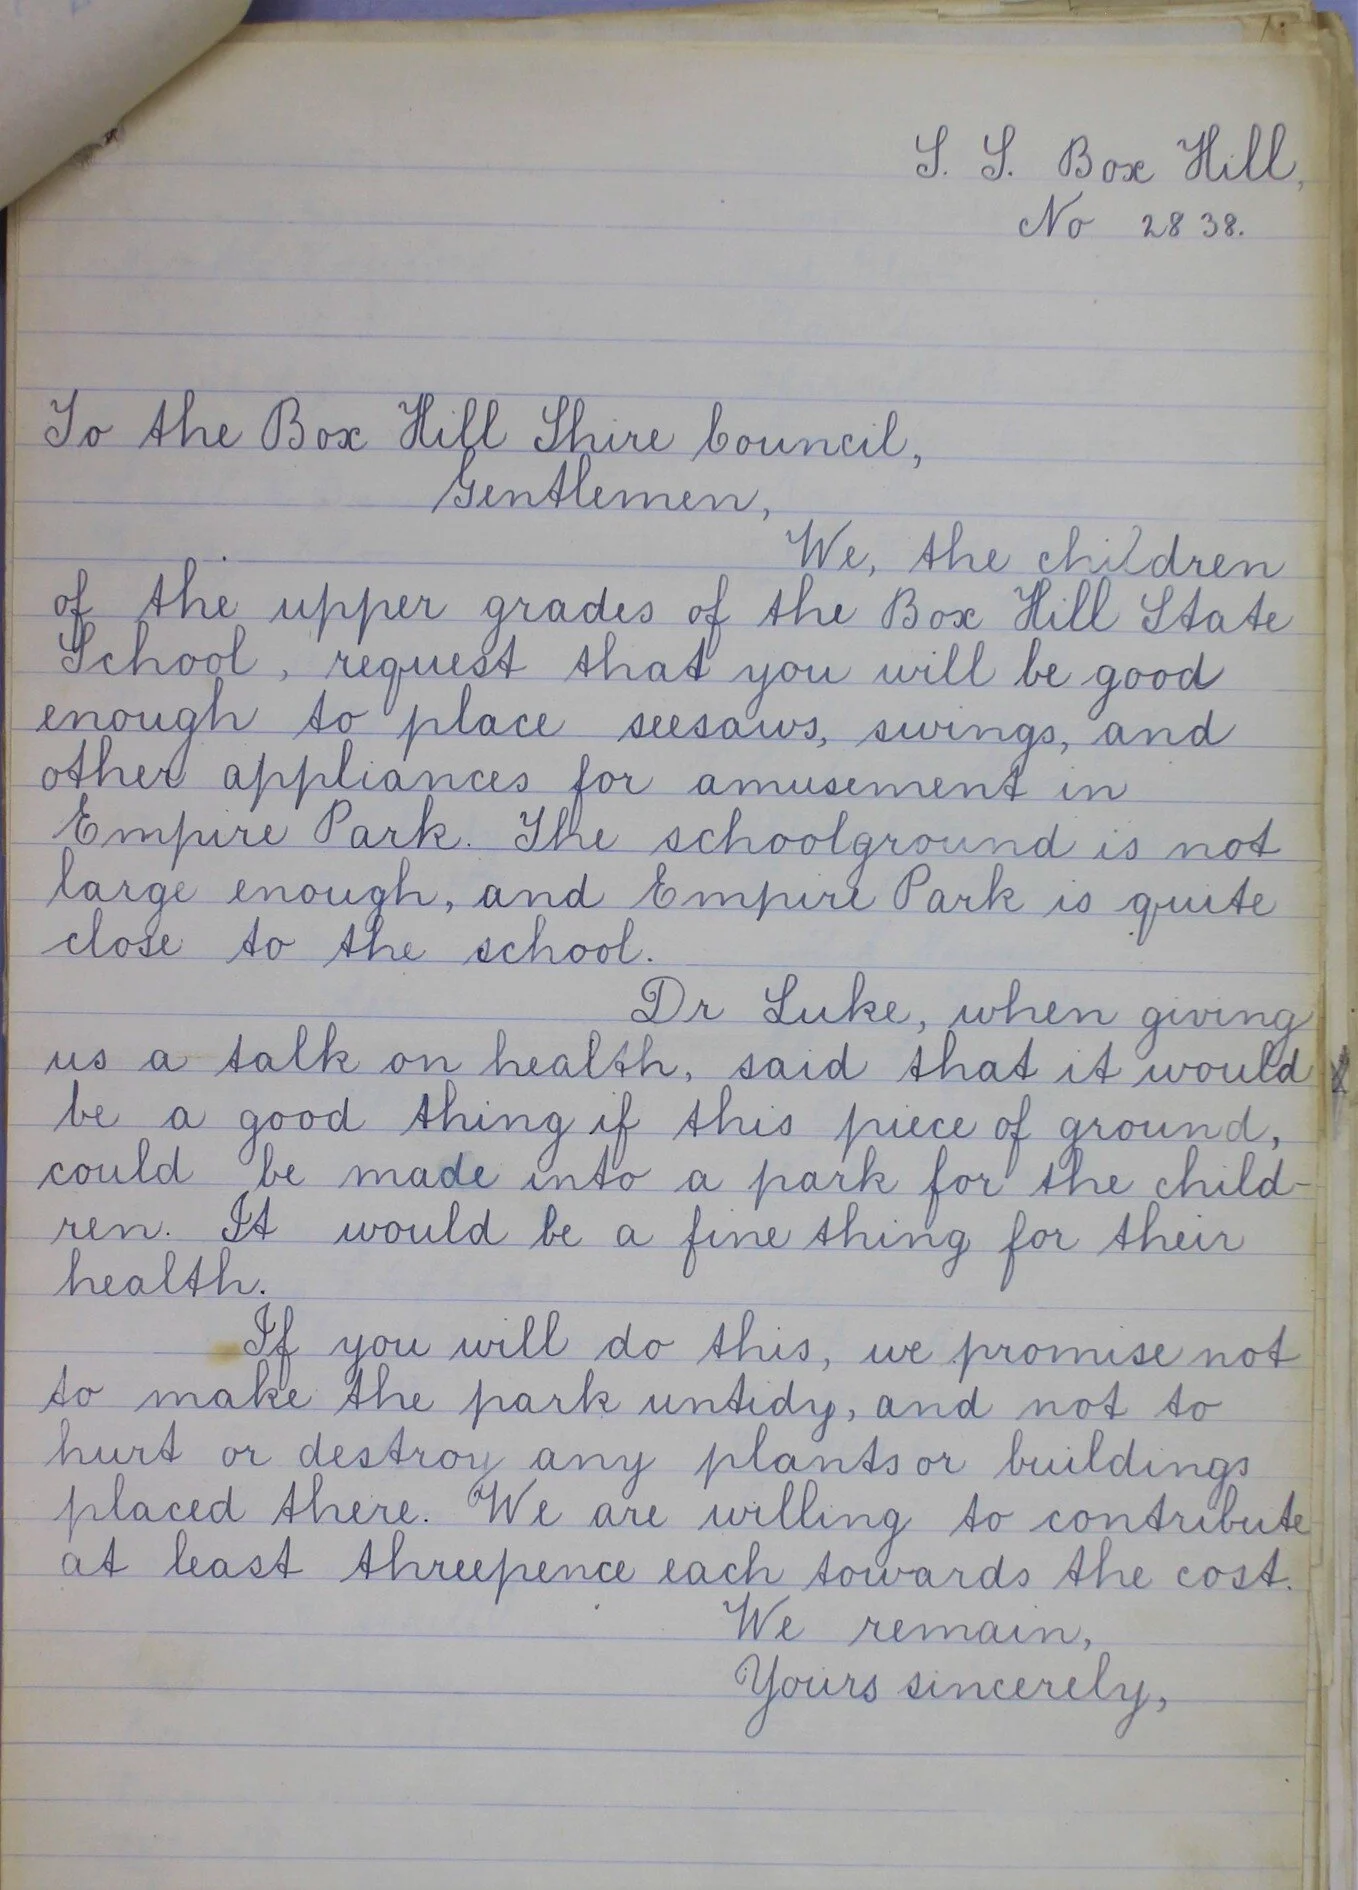 S. S. Box Hill,
No 2838.
To the Box Hill Shire Council,
Gentlemen,
We, the children
of the upper grades of the Box Hill State
School, request that you will be good
enough to place seesaws, swings, and
other appliances for amusement in
Empire Park. The schoolground is not
large enough, and Empire Park is quite
close to the school.
Dr Luke, when giving
us a talk on health, said that it would
be a good thing if this piece of ground,
could be made into a park for the child-
ren. It would be a fine thing for their
health.
If you will do this, we promise not
to make the park untidy, and not to
hurt or destroy any plants or buildings
placed there. We are willing to contribute
at least threepence each towards the cost.
We remain,
Yours sincerely,